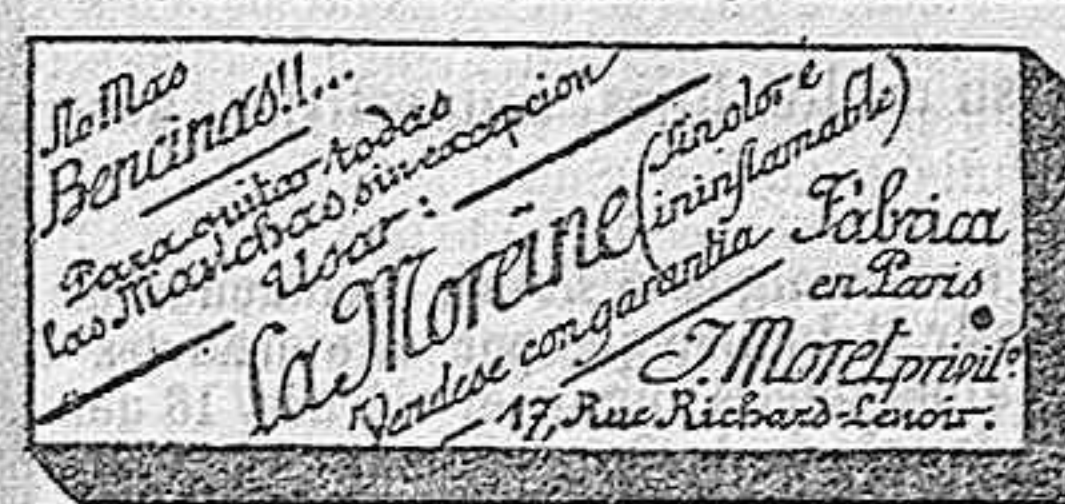 No Mas
Bencinas!!...
Para quitar todas
las Manchas, sin excepcion
Usar:
La Moreïne
(Sin olor é
ininflamable)
Vendese con garantia
Fábrica
en Paris
J. Moret privil.º
17, Rue Richard-Lenoir.